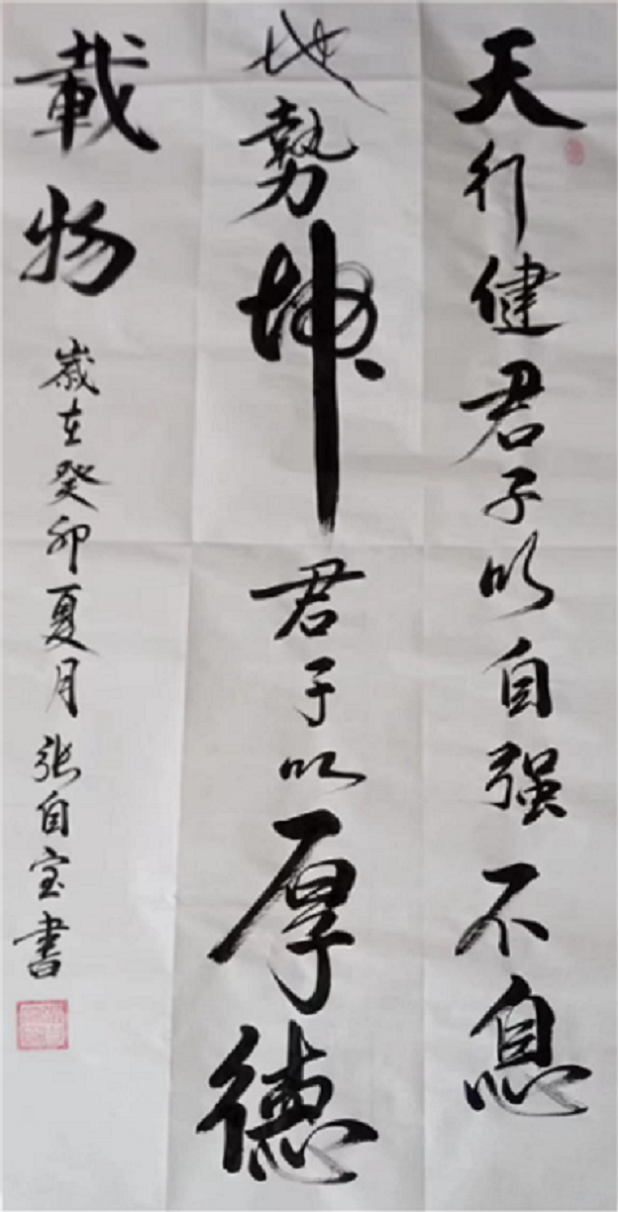 天行健君子以自强不息
地勢坤君子以厚德
載物
歲在癸卯夏月張自宝書